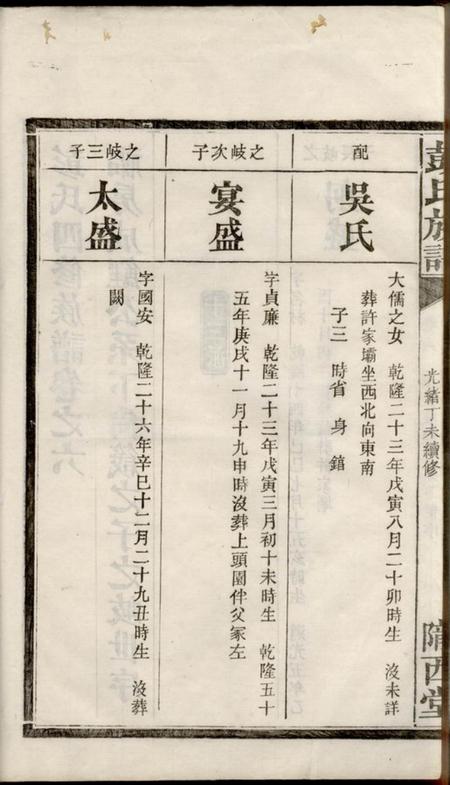 彭氏族譜
光緒丁未續修
隴西堂
配
吳氏
大儒之女 乾隆二十三年戊寅八月二十卯時生 沒未詳
葬許家壩坐西北向東南
子三 時省 身 錧
之歧次子
宴盛
字貞廉 乾隆二十三年戊寅三月初十未時生 乾隆五十
五年庚戌十一月十九申時沒葬上頭園伴父冢左
之歧三子
太盛
字國安 乾隆二十六年辛巳十二月二十九丑時生 沒葬
闕